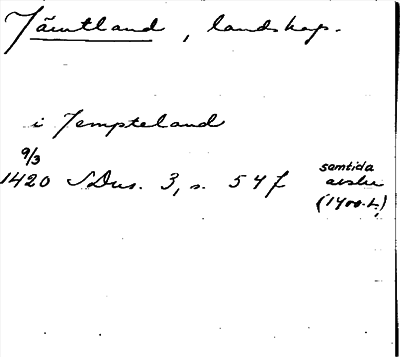 Jämtland, landskap.
i Jempteland
9/3
1420 SDns. 3, s. 547 samtida
avskr
(1400-t.)